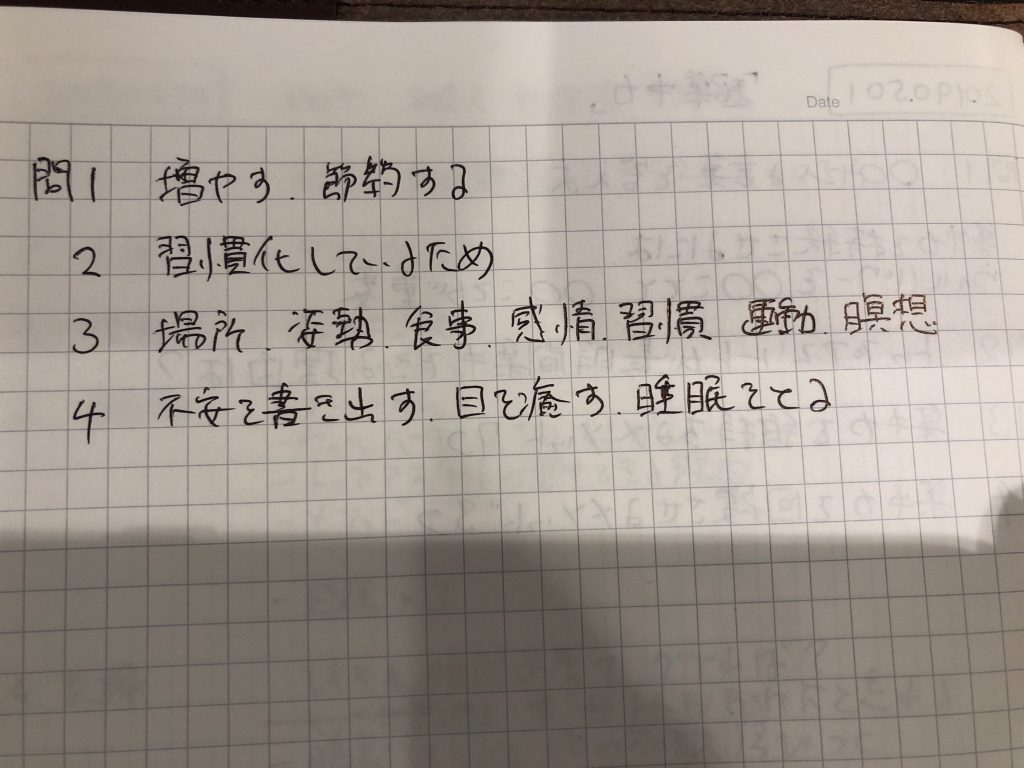 Date
問1 増やす. 節約する
2 習慣化しているため
3 場所. 姿勢. 食事. 感情. 習慣 運動. 瞑想
4 不安を書き出す. 目を癒す. 睡眠をとる